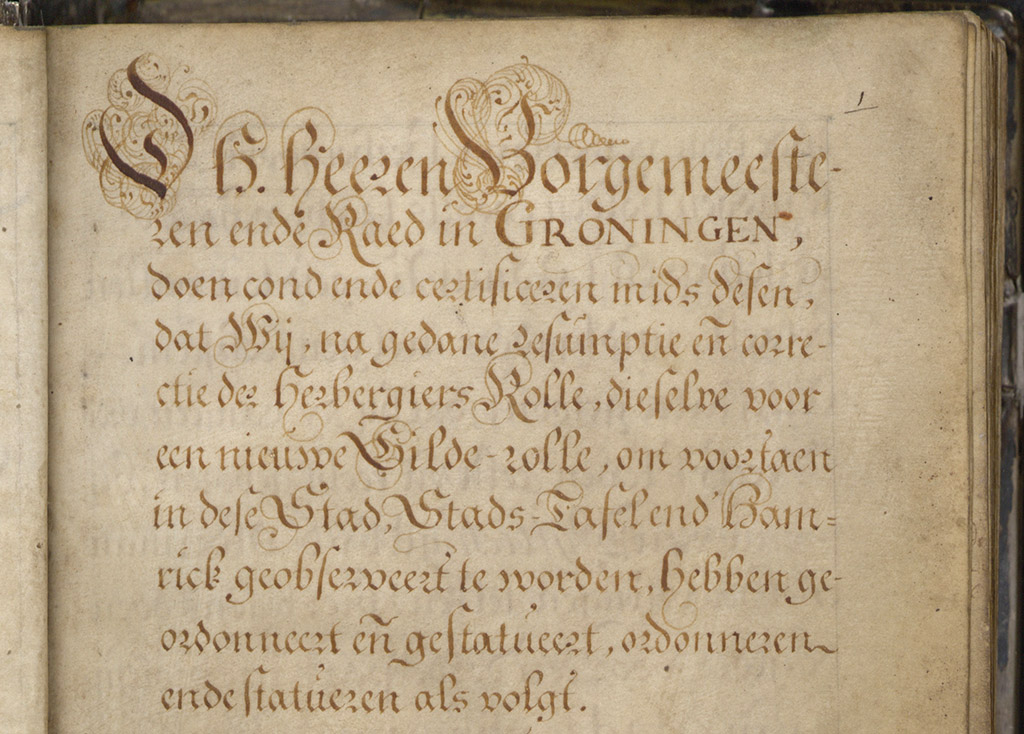 1
D H. Heeren Borgemeeste-
ren ende Raed in GRONINGEN,
doen cond ende certificeren mids desen,
dat Wij, na gedane resumptie en̄ corre-
ctie der Herbergiers Rolle, dieselve voor
een nieuwe Gilde-rolle, om voortaen
in dese Stad, Stads-Tafel end' Ham=
rick geobserveert te worden, hebben ge-
ordonneert en̄ gestatueert, ordonneren
ende statueren als volgt.